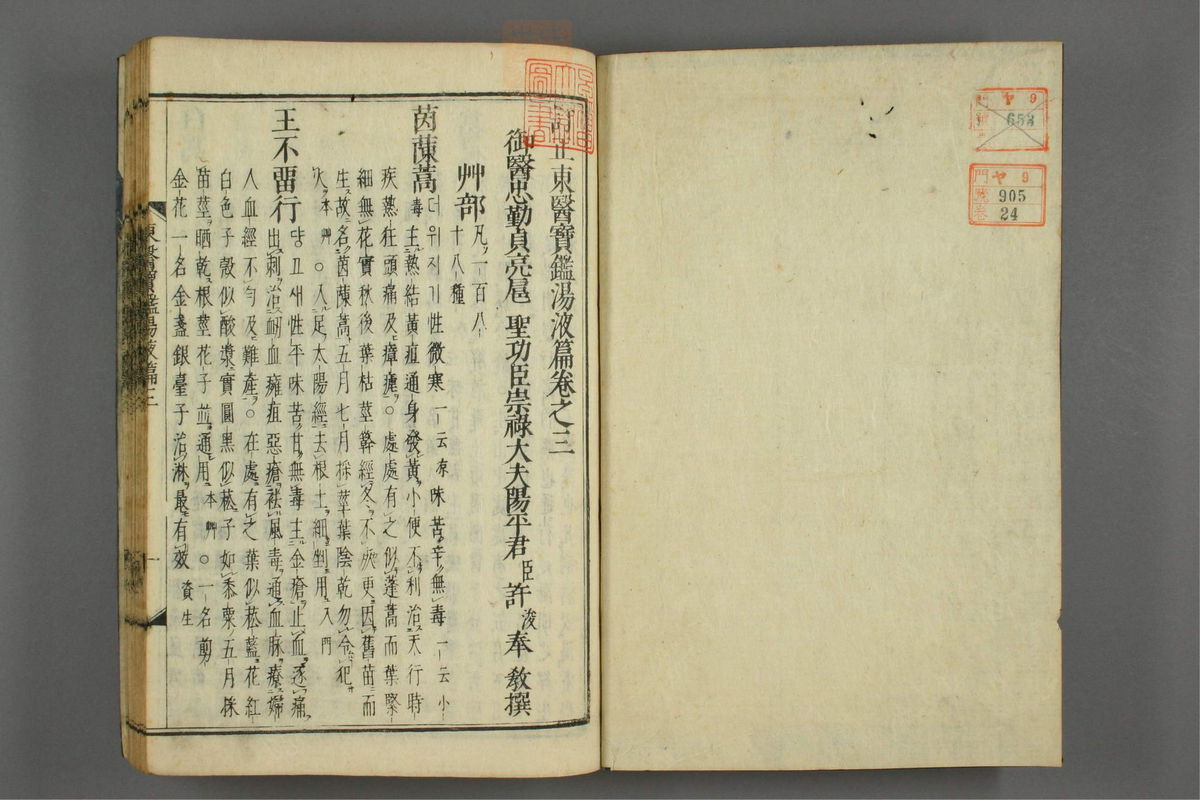 訂正東醫寶鑑湯液篇卷之三
御醫忠勤貞亮扈聖功臣崇祿大夫陽平君臣許浚奉敎撰
艸部凡一百八十八種
茵蔯蒿더위지기性微寒一云凉味苦辛無毒一云小
毒主熱結黃疸通身發黃小便不利治天行時
疾熱狂頭痛及瘴瘧○處處有之似蓬蒿而葉緊
細無花實秋後葉枯莖簳經冬不死更因舊苗而
生故名茵蔯蒿五月七月採莖葉陰乾勿令犯
火本艸○入足太陽經去根土細剉用入門
王不留行댱고새性平味苦甘無毒主金瘡止血逐痛
出刺治衂血癰疽惡瘡祛風毒通血脉療婦
人血經不勻及難產○在處有之葉似菘藍花紅
白色子殼似酸漿實圓黑似菘子如黍粟五月採
苗莖晒乾根莖花子並通用本艸○一名剪
金花一名金盞銀臺子治淋最有效資生
東醫寶鑑湯液篇三
一
門ヤ9
653
門ヤ9
號905
卷24